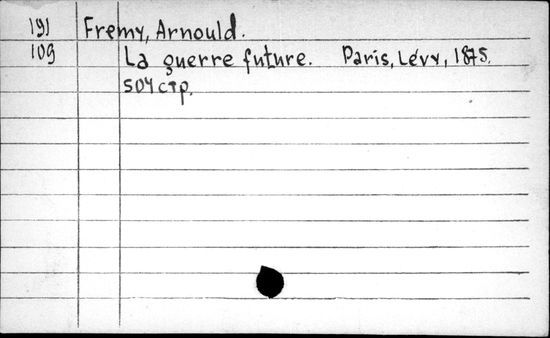 191 Fremy, Arnould.
109 La guerre future. Paris, Lévy, 1875.
504 стр.